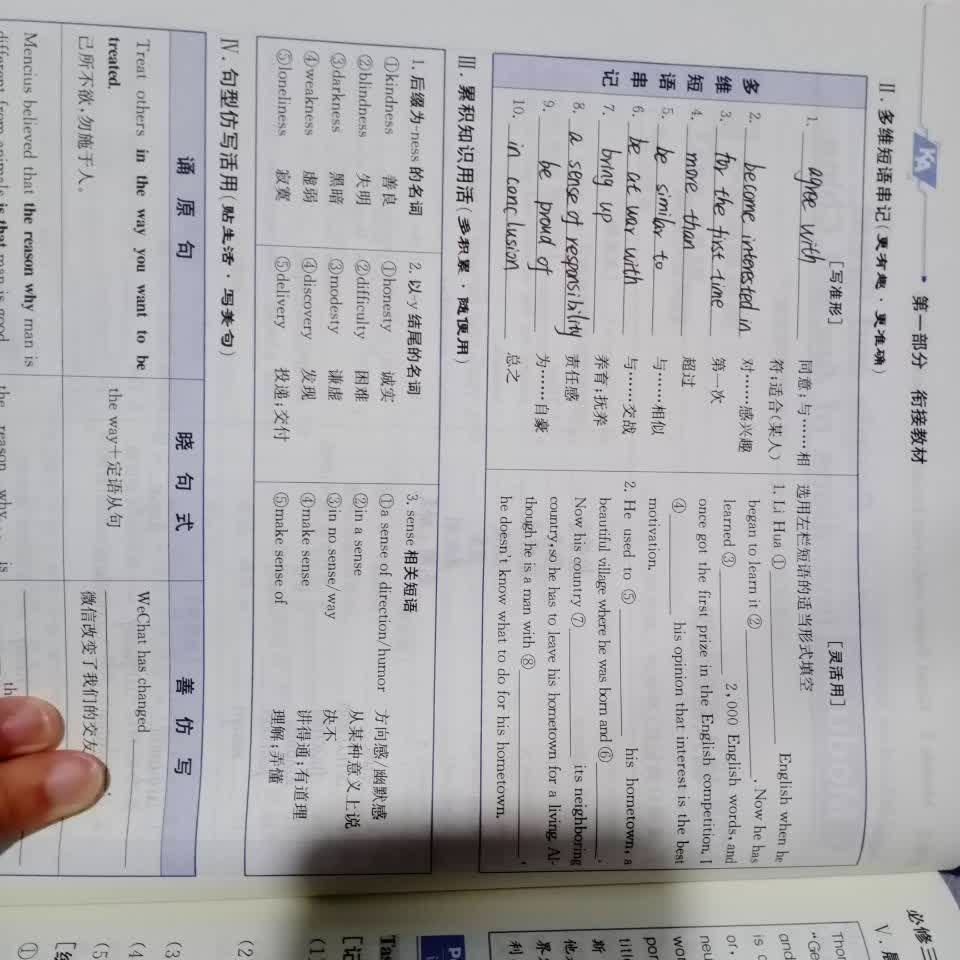 第一部分 衔接教材
Ⅱ.多维短语串记(更有趣·更准确)
多维短语串记
[写准形]
1. agree with 同意;与……相
符;适合(某人)
2. become interested in 对……感兴趣
3. for the first time 第一次
4. more than 超过
5. be similar to 与……相似
6. be at war with 与……交战
7. bring up 养育;抚养
8. a sense of responsibility 责任感
9. be proud of 为……自豪
10. in conclusion 总之
[灵活用]
选用左栏短语的适当形式填空
1. Li Hua ① English when he
began to learn it ② . Now he has
learned ③ 2,000 English words, and
once got the first prize in the English competition. I
④ his opinion that interest is the best
motivation.
2. He used to ⑤ his hometown, a
beautiful village where he was born and ⑥ .
Now his country ⑦ its neighboring
country, so he has to leave his hometown for a living. Al-
though he is a man with ⑧ ,
he doesn't know what to do for his hometown.
Ⅲ.累积知识用活(多积累·随便用)
1.后缀为-ness的名词
①kindness 善良
②blindness 失明
③darkness 黑暗
④weakness 虚弱
⑤loneliness 寂寞
2.以-y结尾的名词
①honesty 诚实
②difficulty 困难
③modesty 谦虚
④discovery 发现
⑤delivery 投递;交付
3. sense 相关短语
①a sense of direction/humor 方向感/幽默感
②in a sense 从某种意义上说
③in no sense/way 决不
④make sense 讲得通;有道理
⑤make sense of 理解;弄懂
Ⅳ.句型仿写活用(贴生活·写美句)
诵原句 晓句式 善仿写
Treat others in the way you want to be
treated.
己所不欲,勿施于人。
the way+定语从句
WeChat has changed
微信改变了我们的交友
Mencius believed that the reason why man is
different from animals is that man is good
the reason why... is
th
必修三
Ⅴ.
Thor
"Ge
and
is c
or,
neu
wor
por
titl
斯
他
界
利
Tas
[记
(1
(2
(3
(4
(5
①